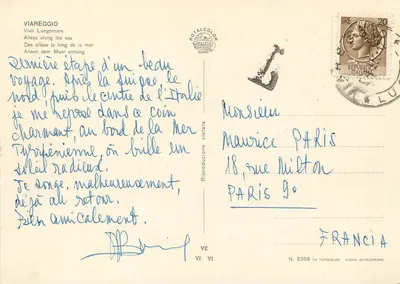 VIAREGGIO
Viali Lungomare
Alleys along the sea
Des allées le long de la mer
Alleen dem Meer entlang
Dernière étape d'un beau
voyage. Après la Suisse le
nord, puis le centre de l'Italie
je me repose dans ce coin
charmant, au bord de la Mer
Tyrrhénienne, où brille un
soleil radieux.
Je songe, malheureusement,
déjà au retour.
Bien amicalement.
ROTALCOLOR
Riproduzione vietata
VE
VI VI
T
20
Monsieur
Maurice PARIS
18, rue Milton
PARIS 9e
FRANCIA
N. 2368